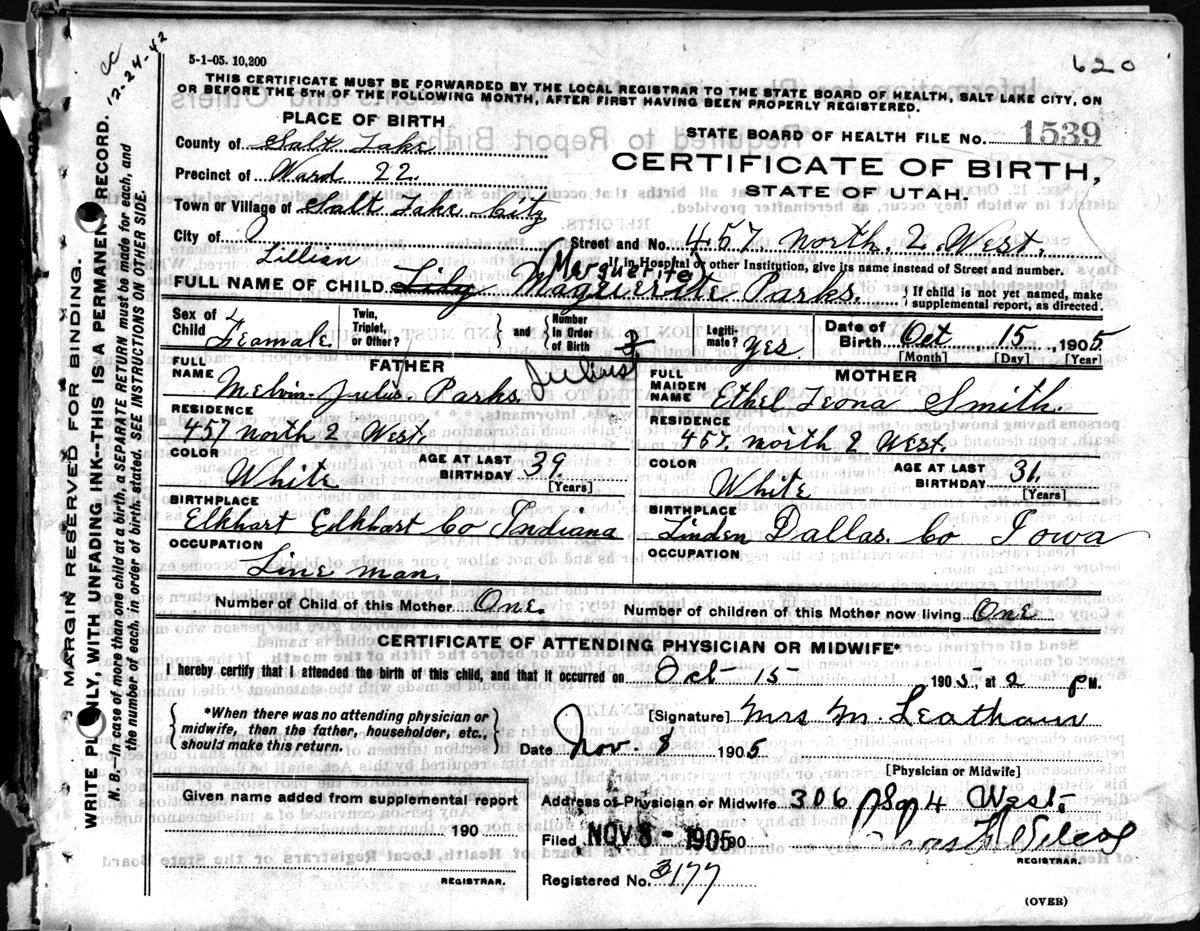 cc
12-24-42
5-1-05. 10,200
620
THIS CERTIFICATE MUST BE FORWARDED BY THE LOCAL REGISTRAR TO THE STATE BOARD OF HEALTH, SALT LAKE CITY, ON
OR BEFORE THE 5TH OF THE FOLLOWING MONTH, AFTER FIRST HAVING BEEN PROPERLY REGISTERED.
PLACE OF BIRTH
STATE BOARD OF HEALTH FILE NO. 1539
County of Salt Lake
CERTIFICATE OF BIRTH,
Precinct of Ward 22
STATE OF UTAH.
Town or Village of Salt Lake City
City of
Street and No. 457 North. 2 West.
If in Hospital or other Institution, give its name instead of Street and number.
Lillian Marguerite
FULL NAME OF CHILD Lily Maguerite Parks. { If child is not yet named, make
supplemental report, as directed.
Sex of Child Feamale
Twin, Triplet, or Other? } and { Number in Order of Birth
Legiti-mate? yes
Date of Birth Oct 15, 1905
[Month] [Day] [Year]
FATHER
FULL NAME Melvin Julus Parks Julius
RESIDENCE
457 North 2 West
COLOR White
AGE AT LAST BIRTHDAY 39 [Years]
BIRTHPLACE
Elkhart Elkhart Co Indiana
OCCUPATION
Line man.
MOTHER
FULL MAIDEN NAME Ethel Leona Smith.
RESIDENCE
457 North 2 West.
COLOR White
AGE AT LAST BIRTHDAY 31 [Years]
BIRTHPLACE
Linden Dallas Co Iowa
OCCUPATION
Number of Child of this Mother One. Number of children of this Mother now living One
CERTIFICATE OF ATTENDING PHYSICIAN OR MIDWIFE*
I hereby certify that I attended the birth of this child, and that it occurred on Oct 15 1905, at 2 PM.
{ *When there was no attending physician or
midwife, then the father, householder, etc.,
should make this return. }
[Signature] Mrs M. Leatham
Date Nov. 8 1905
[Physician or Midwife]
Given name added from supplemental report
190
REGISTRAR.
Address of Physician or Midwife 306 So 4 West
Filed NOV 8 - 1905 190
REGISTRAR.
Registered No. 3177
(OVER)
MARGIN RESERVED FOR BINDING.
WRITE PLAINLY, WITH UNFADING INK--THIS IS A PERMANENT RECORD.
N. B.--In case of more than one child at a birth, a SEPARATE RETURN must be made for each, and
the number of each, in order of birth, stated. SEE INSTRUCTIONS ON OTHER SIDE.